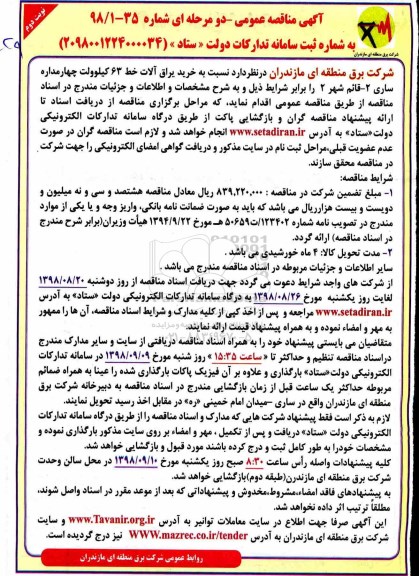 نوبت دوم
آگهی مناقصه عمومی -دو مرحله ای شماره ۳۵-۹۸/۱
به شماره ثبت سامانه تدارکات دولت « ستاد » (۲۰۹۸۰۰۱۲۲۴۰۰۰۰۳۴)
شرکت برق منطقه ای مازندران
شرکت برق منطقه ای مازندران درنظردارد نسبت به خرید یراق آلات خط ۶۳ کیلوولت چهارمداره
ساری ۲-قائم شهر ۲ را برابر شرایط ذیل و به شرح مشخصات و اطلاعات و جزئیات مندرج در اسناد
مناقصه از طریق مناقصه عمومی اقدام نماید، که مراحل برگزاری مناقصه از دریافت اسناد تا
ارائه پیشنهاد مناقصه گران و بازگشایی پاکت از طریق درگاه سامانه تدارکات الکترونیکی
دولت«ستاد» به آدرس www.setadiran.ir انجام خواهد شد و لازم است مناقصه گران در صورت
عدم عضویت قبلی،مراحل ثبت نام در سایت مذکور و دریافت گواهی امضای الکترونیکی را جهت شرکت
در مناقصه محقق سازند.
شرایط مناقصه:
۱- مبلغ تضمین شرکت در مناقصه : ۸۳۹,۲۲۰,۰۰۰ ریال معادل مناقصه هشتصد و سی و نه میلیون و
دویست و بیست هزارریال می باشد که باید به صورت ضمانت نامه بانکی، واریز وجه و یا یکی از موارد
مندرج در تصویب نامه شماره ۱۲۳۴۰۲/ت۵۰۶۵۹ هـ مورخ ۱۳۹۴/۹/۲۲ هیأت وزیران(برابر شرح مندرج
در اسناد مناقصه) ارائه گردد.
۲- مدت تحویل کالا: ۴ ماه خورشیدی می باشد .
سایر اطلاعات و جزئیات مربوطه در اسناد مناقصه مندرج می باشد .
از شرکت های واجد شرایط دعوت می گردد جهت دریافت اسناد مناقصه از روز دوشنبه ۱۳۹۸/۰۸/۲۰
لغایت روز یکشنبه مورخ ۱۳۹۸/۰۸/۲۶ به درگاه سامانه تدارکات الکترونیکی دولت «ستاد» به آدرس
www.setadiran.ir مراجعه و پس از اخذ کپی از کلیه مدارک و شرایط اسناد مناقصه، آن ها را ممهور
به مهر و امضاء نموده و به همراه پیشنهاد قیمت ارائه نمایند.
متقاضیان می بایستی پیشنهاد خود را به همراه اسناد مناقصه دریافتی از سایت و سایر مدارک مندرج
دراسناد مناقصه تنظیم و حداکثر تا « ساعت ۱۵:۳۵ » روز شنبه مورخ ۱۳۹۸/۰۹/۰۹ در سامانه تدارکات
الکترونیکی دولت«ستاد» بارگذاری و علاوه بر آن فیزیک پاکات بارگذاری شده را عینا به همراه ضمائم
مربوطه حداکثر یک ساعت قبل از زمان بازگشایی مندرج در اسناد مناقصه به دبیرخانه شرکت برق
منطقه ای مازندران واقع در ساری -میدان امام خمینی «ره» در مقابل اخذ رسید تحویل نمایند.
لازم به ذکر است فقط پیشنهاد شرکت هایی که مدارک و اسناد مناقصه را از طریق درگاه سامانه تدارکات
الکترونیکی دولت «ستاد» دریافت و پس از تکمیل ، مهر و امضاء بر روی سایت مذکور بارگذاری نموده و
مشخصات خودرا به طور کامل ثبت و درج کرده باشند مورد قبول و بازگشایی خواهد شد.
کلیه پیشنهادات واصله رأس ساعت ۸:۳۰ صبح روز یکشنبه مورخ ۱۳۹۸/۰۹/۱۰ در محل سالن وحدت
شرکت برق منطقه ای مازندرن(طبقه دوم)بازگشایی خواهد شد.
به پیشنهادهای فاقد امضاء،مشروط،مخدوش و پیشنهاداتی که بعد از موعد مقرر در اسناد واصل شوند،
مطلقاً ترتیب اثر داده نخواهد شد.
این آگهی صرفا جهت اطلاع در سایت معاملات توانیر به آدرس www.Tavanir.org.ir و سایت
شرکت برق منطقه ای مازندران به آدرس WWW.mazrec.co.ir/tender نیز درج گردیده است.
روابط عمومی شرکت برق منطقه ای مازندران